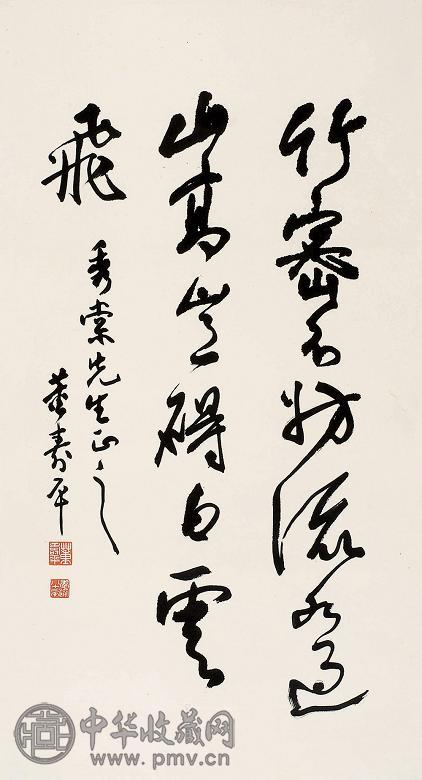 竹密不妨流水過
山高豈礙白雲
飛
秀棠先生正之
董壽平
中华收藏网
www.pmv.cn